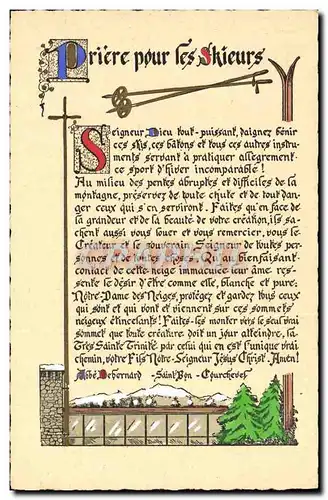 Prière pour les Skieurs
Seigneur Dieu tout-puissant, daignez bénir
ces skis, ces bâtons et tous ces autres instru-
ments servant à pratiquer allègrement
ce sport d'hiver incomparable!
Au milieu des pentes abruptes et difficiles de la
montagne, préservez de toute chute et de tout dan-
ger ceux qui s'en serviront. Faites qu'en face de
la grandeur et de la beauté de votre création, ils sa-
chent aussi vous louer et vous remercier, vous le
Créateur et le souverain Seigneur de toutes per-
sonnes et de toutes choses. Qu'au bienfaisant
contact de cette neige immaculée leur âme res-
sente le désir d'être comme elle, blanche et pure;
Notre-Dame des Neiges, protégez et gardez tous ceux
qui sont et qui vont et viennent sur ces sommets
neigeux étincelants! Faites-les monter vers le seul vrai
sommet que toute créature doit un jour atteindre, la
Très Sainte Trinité par celui qui en est l'unique vrai
chemin, votre Fils Notre-Seigneur Jésus Christ. Amen!
Abbé Debernard - Saint Bon - Courchevel